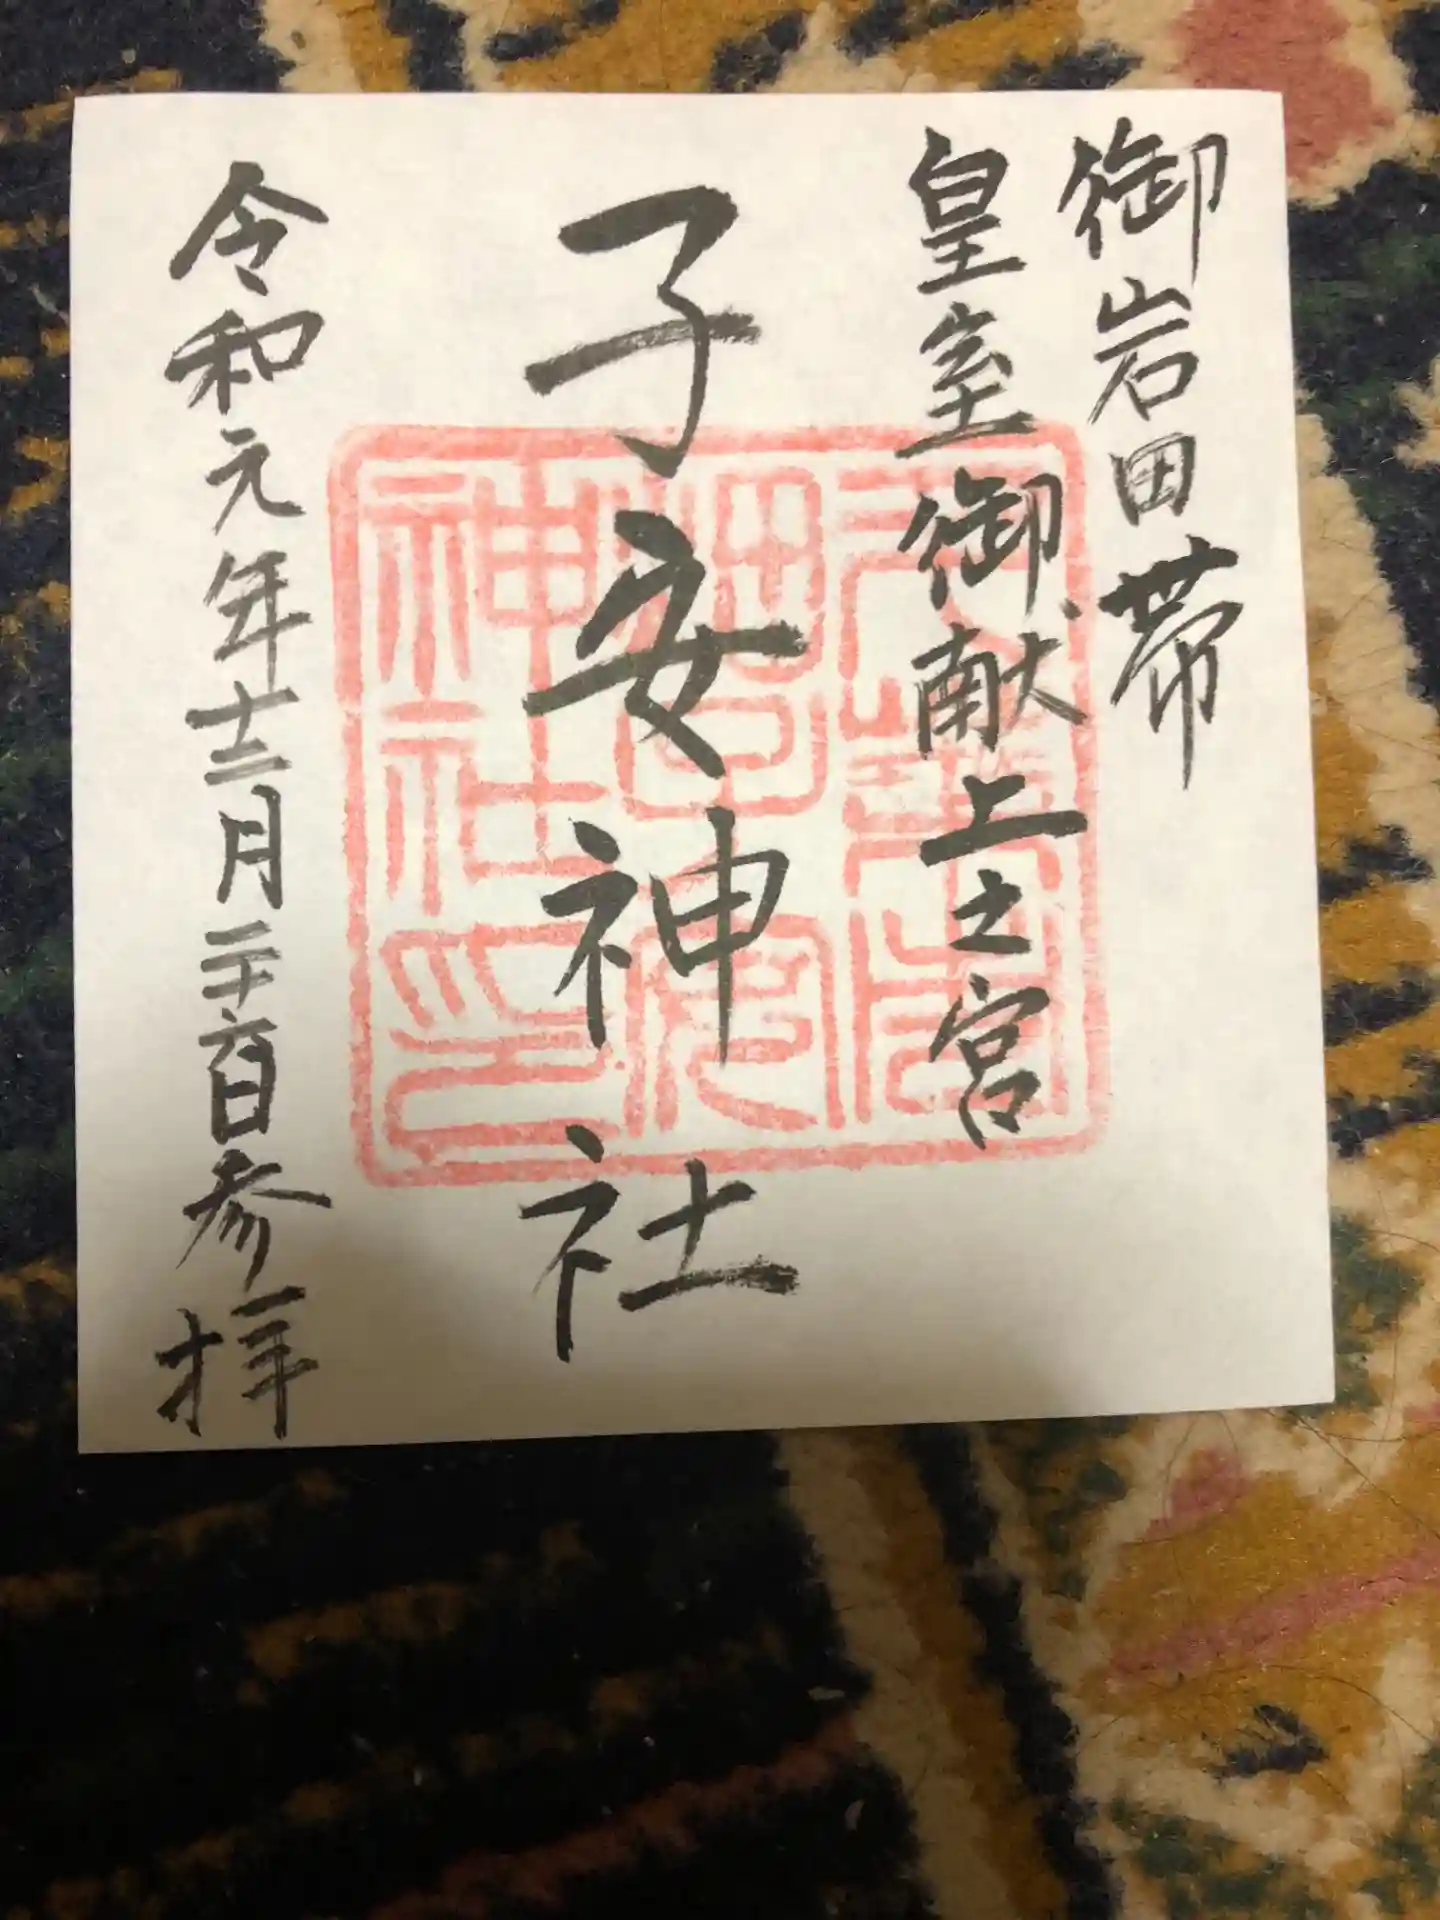 御岩田帯
皇室御献上之宮
子安神社
令和元年十二月二十六日参拝
神社印